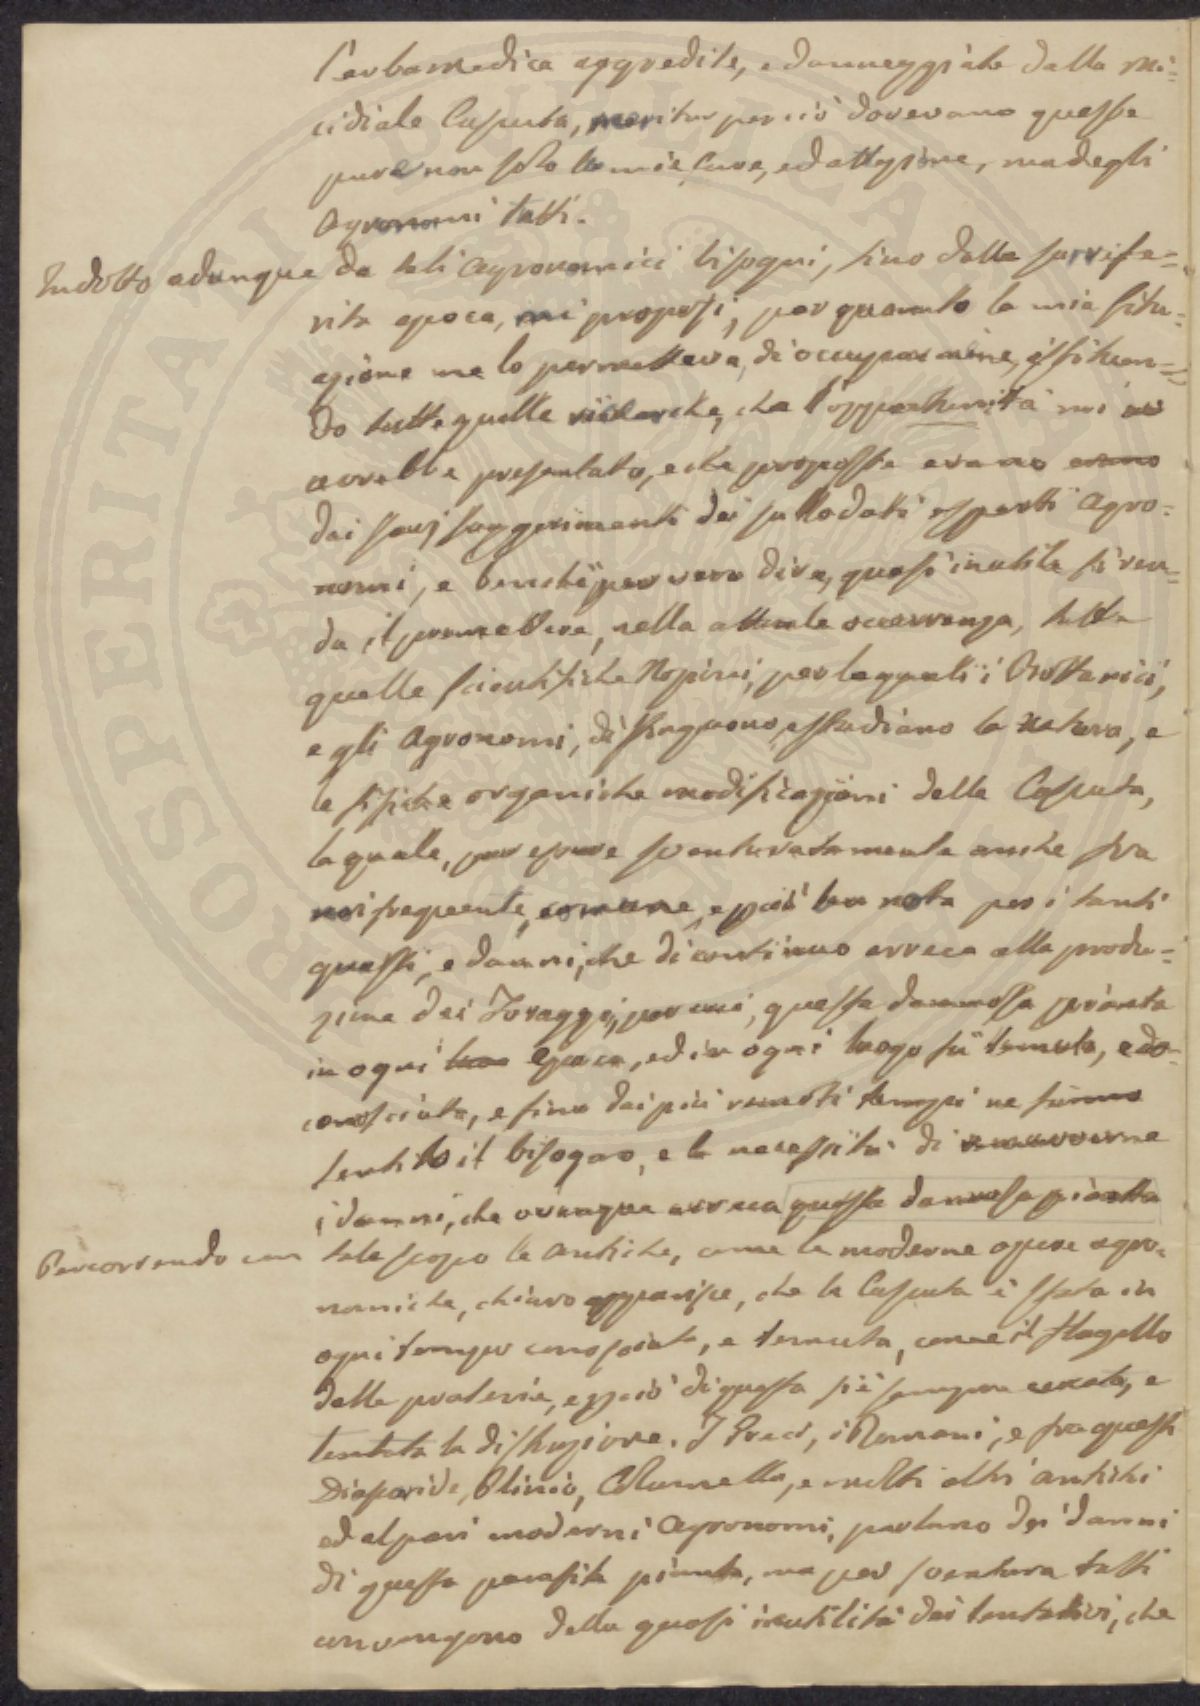 l'erbamedica aggredite, e danneggiate dalla mi-
cidiale Cuscuta, meritar perciò dovevano queste
pure non solo le mie cure, ed attenzione, ma degli
Agronomi tutti.
Indotto adunque da tali agronomici bisogni, fino dalla surrife-
rita epoca, mi proposi, per quanto la mia situ-
azione me lo permetteva, di occuparmene, istituen-
do tutte quelle ricerche, che l'opportunità mi
avrebbe presentato, e che proposte erano erano
dai savj suggerimenti dei sullodati esperti Agro-
nomi, e benchè per vero dire, quasi inutile si ren-
da il premettere, nella attuale occorrenza, tutte
quelle scientifiche Nozioni, per le quali i Bottanici,
e gli Agronomi, distinguono, e studiano la natura, e
le fisiche organiche modificazioni della Cuscuta,
la quale, per essere sventuratamente anche fra
noi frequente, comune, e più ben nota per i tanti
guasti, e danni, che di continuo arreca alla produ-
zione dei Foraggi, per cui, questa dannosa pianta
in ogni epoca, ed in ogni luogo fù temuta, e
conosciuta, e fino dai più remoti tempi ne
sentito il bisogno, e la necessità di rimuoverne
i danni, che ovunque arreca questa dannosa pianta
Percorrendo con tale scopo le antiche, come le moderne opere agro-
nomiche, chiaro apparisce, che la Cuscuta è stata in
ogni tempo conosciuta, e temuta, come il flagello
delle praterie, e perciò di questa si è sempre cercata, e
tentata la distruzione. I Greci, i Romani, e fra questi
Dioscoride, Plinio, Columella, e molti altri antichi
ed al pari moderni Agronomi, parlano dei danni
di questa parasita pianta, ma per sventura tutti
convengono della quasi inutilità dei tentativi, che